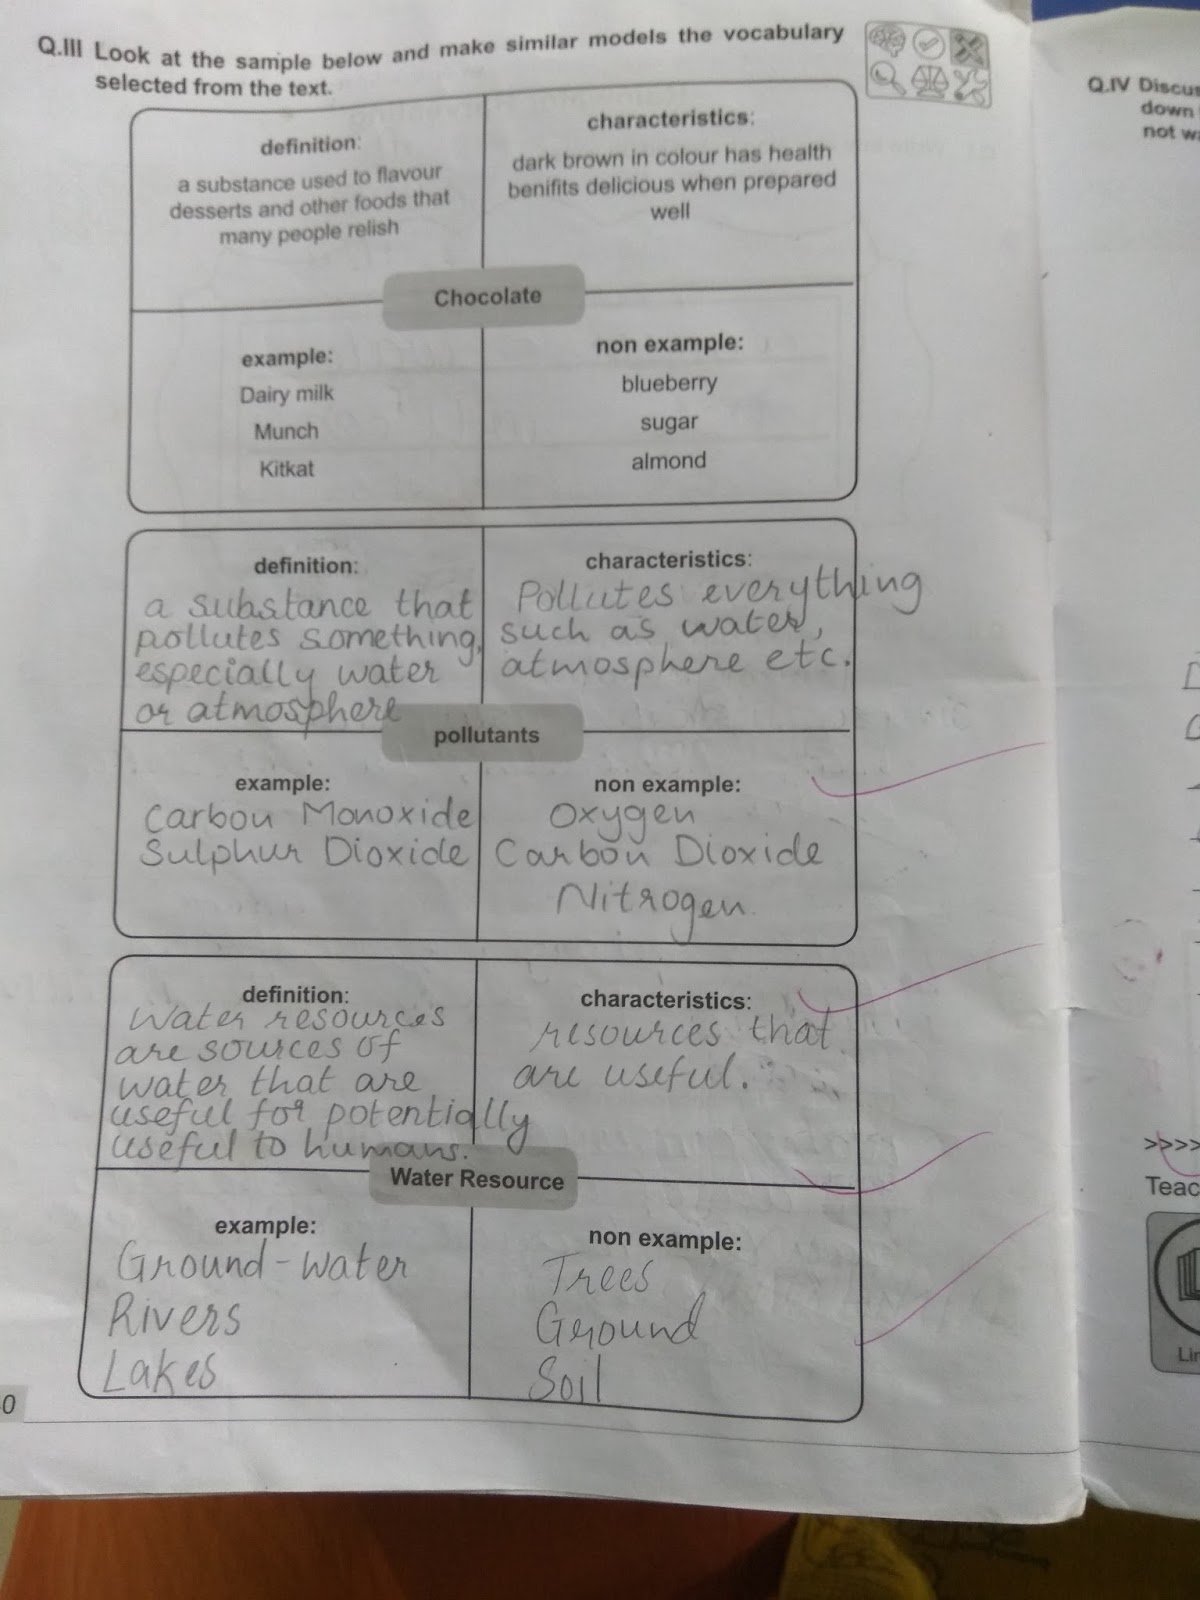 Q.III Look at the sample below and make similar models the vocabulary
selected from the text.
definition:
a substance used to flavour
desserts and other foods that
many people relish
characteristics:
dark brown in colour has health
benifits delicious when prepared
well
Chocolate
example:
Dairy milk
Munch
Kitkat
non example:
blueberry
sugar
almond
definition:
a substance that
pollutes something,
especially water
or atmosphere
characteristics:
Pollutes everything
such as water,
atmosphere etc.
pollutants
example:
Carbon Monoxide
Sulphur Dioxide
non example:
Oxygen
Carbon Dioxide
Nitrogen.
definition:
Water resources
are sources of
water that are
useful for potentially
useful to humans.
characteristics:
resources that
are useful.
Water Resource
example:
Ground-water
Rivers
Lakes
non example:
Trees
Ground
Soil
0
Q.IV Discus
down
not w
>>>>
Teac
Lin